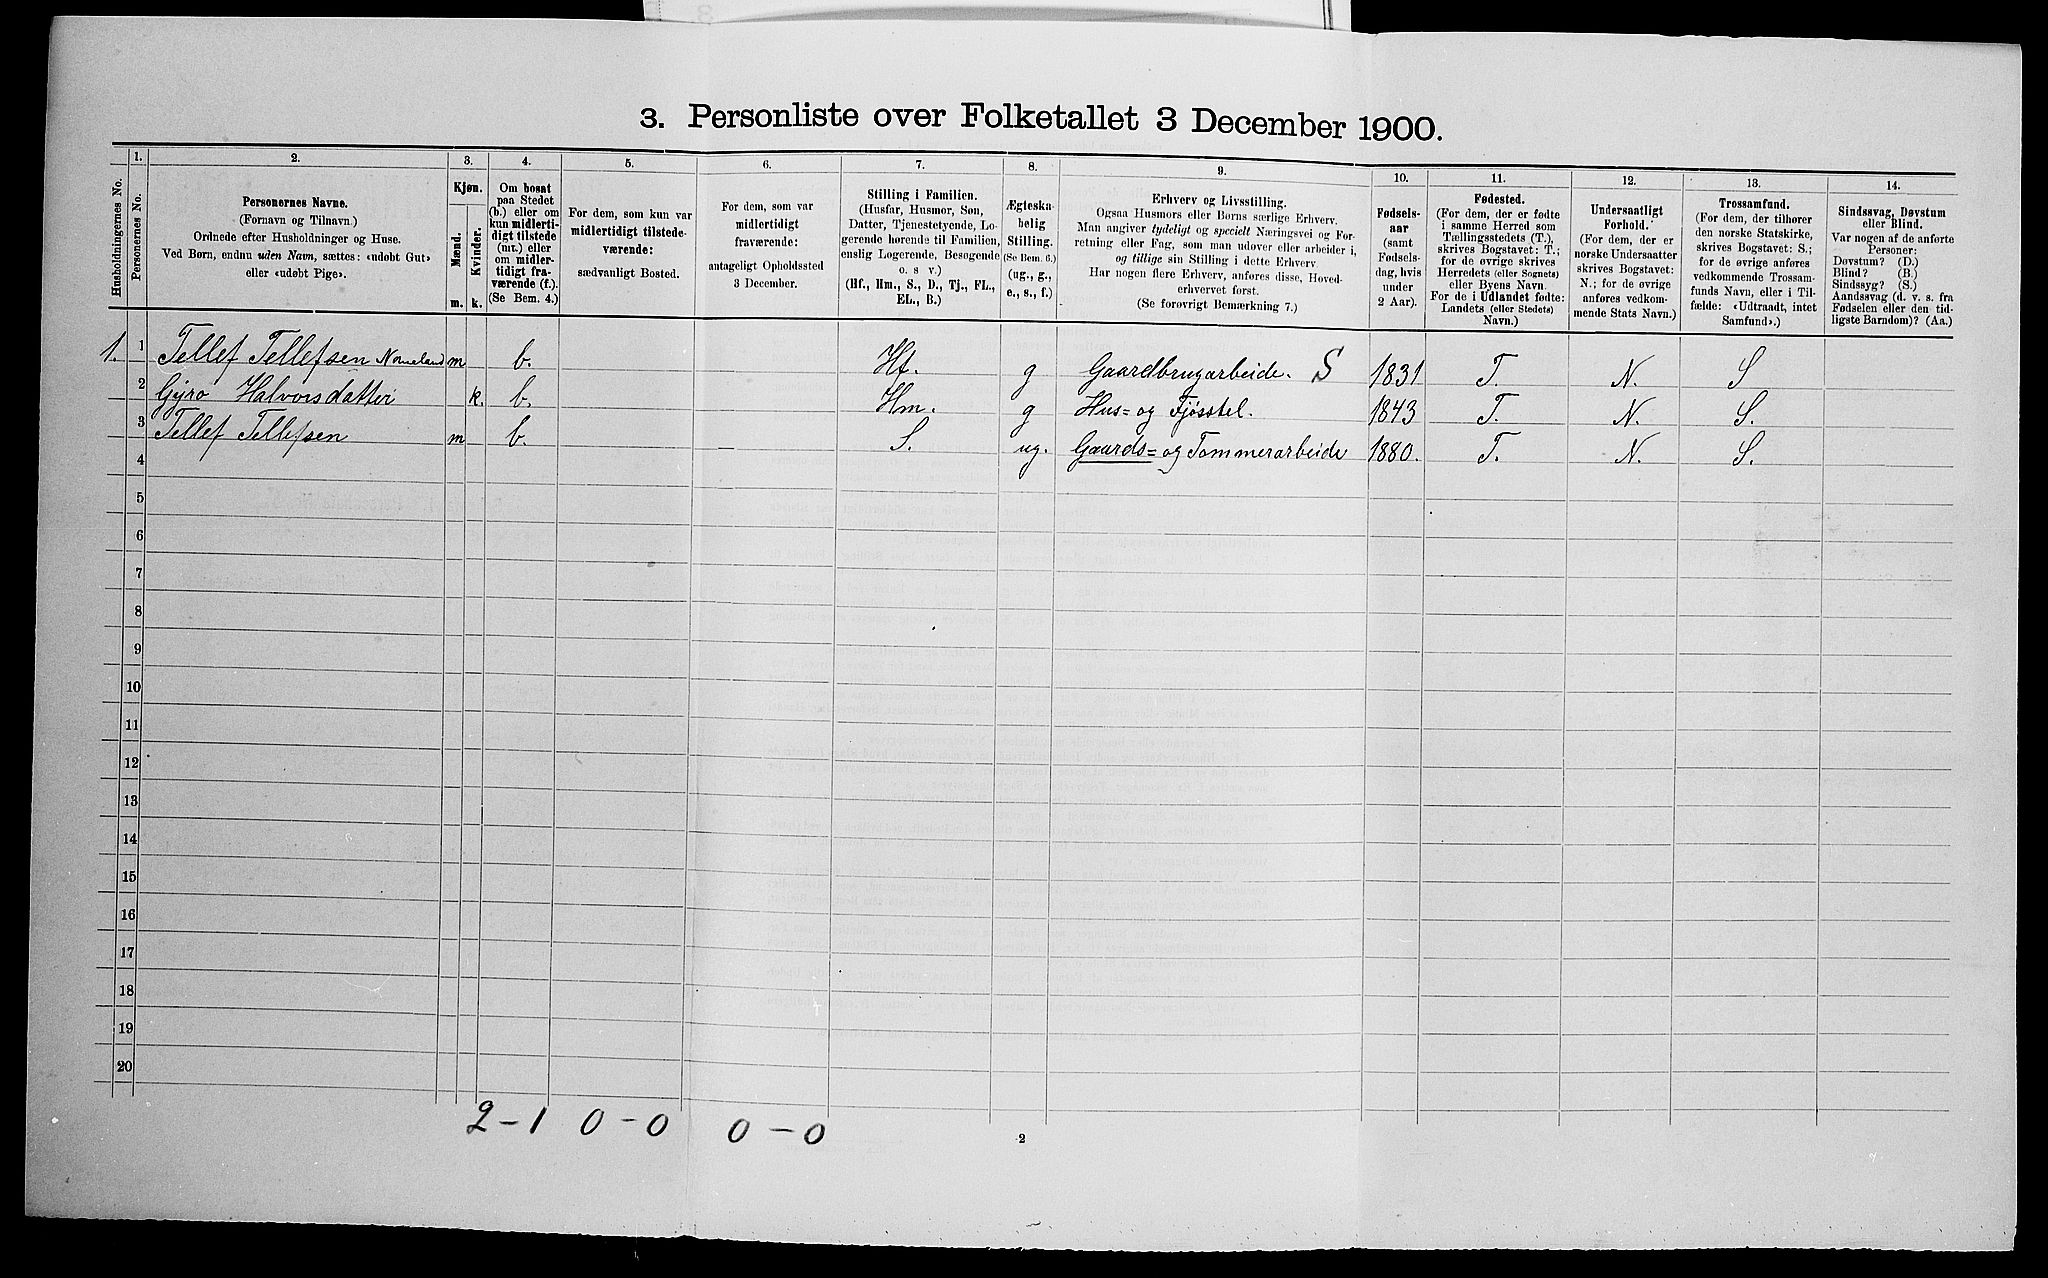 3. Personliste over Folketallet 3 December 1900.
Husholdningernes No.
1.
Personernes No.
2.
Personernes Navne.
(Fornavn og Tilnavn.)
Ordnede efter Husholdninger og Huse.
Ved Børn, endnu uden Navn, sættes: «udøbt Gut»
eller «udøbt Pige».
3.
Kjøn.
Mænd.
Kvinder.
m. k.
4.
Om bosat
paa Stedet
(b.) eller om
kun midlerti-
digt tilstede
(mt.) eller
om midler-
tidigt fra-
værende (f.).
(Se Bem. 4.)
5.
For dem, som kun var
midlertidigt tilstede-
værende:
sædvanligt Bosted.
6.
For dem, som var
midlertidigt
fraværende:
antageligt Opholdssted
3 December.
7.
Stilling i Familien.
(Husfar, Husmor, Søn,
Datter, Tjenestetyende, Lo-
gerende hørende til Familien,
enslig Logerende, Besøgende
o. s v.)
(Hf., Hm., S., D., Tj., FL.,
EL., B.)
8.
Ægteska-
belig
Stilling.
(Se Bem. 6.)
(ug., g.,
e., s., f.)
9.
Erhverv og Livsstilling.
Ogsaa Husmors eller Børns særlige Erhverv.
Man angiver tydeligt og specielt Næringsvei og For-
retning eller Fag, som man udøver eller arbeider i,
og tillige sin Stilling i dette Erhverv
Har nogen flere Erhverv, anføres disse, Hoved-
erhvervet først.
(Se forøvrigt Bemærkning 7.)
10.
Fødsels-
aar
(samt
Fødsels-
dag, hvis
under
2 Aar).
11.
Fødested.
(For dem, der er fødte
i samme Herred som
Tællingsstedets (T.),
skrives Bogstavet: T.;
for de øvrige skrives
Herredets (eller Sognets)
eller Byens Navn.
For de i Udlandet fødte:
Landets (eller Stedets)
Navn.)
12.
Undersaatligt
Forhold.
(For dem, der er
norske Undersaatter
skrives Bogstavet:
N.; for de øvrige
anføres vedkom-
mende Stats Navn.)
13.
Trossamfund.
(For dem, der tilhører
den norske Statskirke,
skrives Bogstavet: S.;
for de øvrige anføres
vedkommende Trossam-
funds Navn, eller i Til-
fælde: «Udtraadt, intet
Samfund».)
14.
Sindssvag, Døvstum
eller Blind.
Var nogen af de anførte
Personer:
Døvstum? (D.)
Blind? (B.)
Sindssyg? (S.)
Aandssvag (d. v. s. fra
Fødselen eller den tid-
ligste Barndom)? (Aa.)
1. 1 Tellef Tellefsen Nomeland m b. Hf. g Gaardbrugarbeide. S 1831 T. N. S
2 Gyro Halvorsdatter k. b. Hm. g Hus= og Fjøsstel. 1843 T. N. S.
3 Tellef Tellefsen m b. S. ug. Gaards= og Tømmerarbeide 1880. T. N. S.
4
5
6
7
8
9
10
11
12
13
14
15
16
17
18
19
20
2-1 0-0 0-0
2